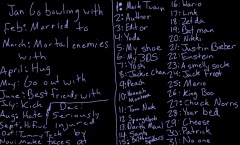 Jan Go bowling with
Feb: Married to
March: Mortal enemies
with
April: Hug
May: Go out with
June: Best friend with
July: Kick
Aug: Hate
Sept:
Oct:
Nov: Make faces at
Dec:
Seriously
injured
by
1: Mark Twain
2: Author
3: Editor
4: Yoda
5: My shoe
6: My 3DS
7: Yoshi
8: Jackie Chan
9: Peach
10: Mario
11:
12: Tom Nook
13: Spongebob
14:
15: Shrek
16: Wario
17: Link
18: Zelda
19: Batman
20: Nikki
21: Justin Bieber
22: Einstein
23: A gummy sock
24: Jack Frost
25: Moses
26: King Boo
27: Chuck Norris
28: Your bed
29: Cheese
30: Patrick
31: No one